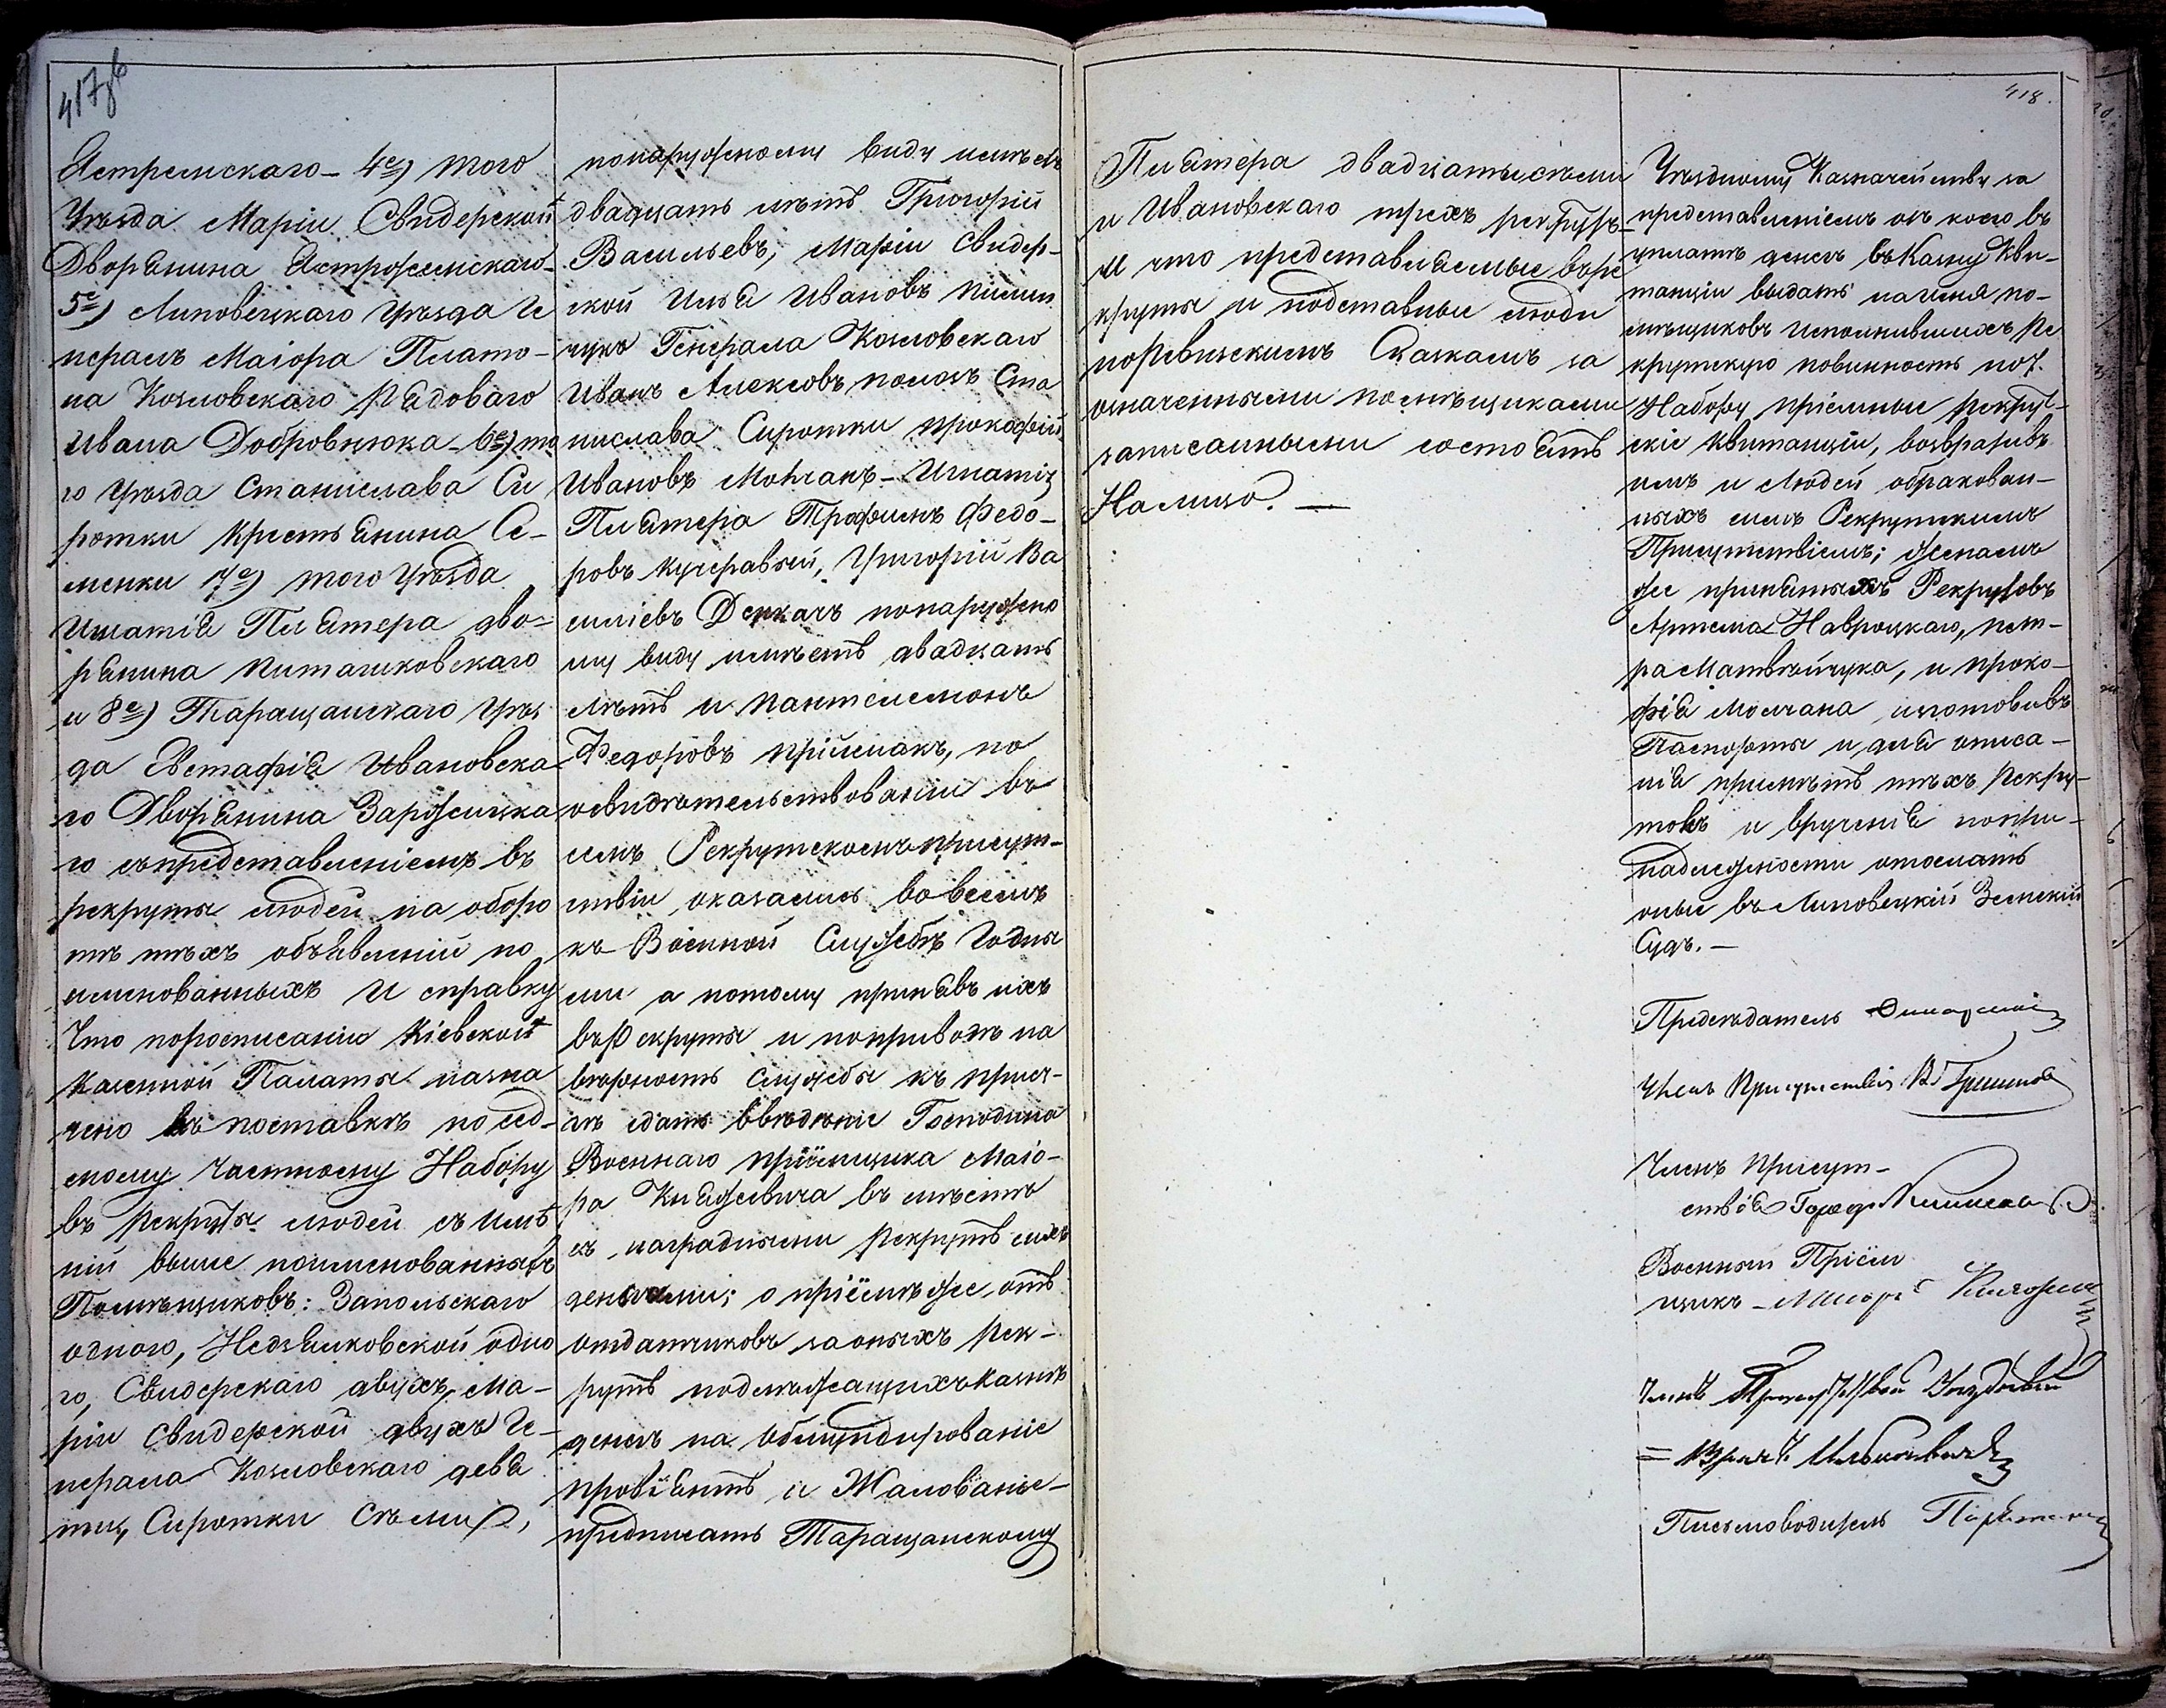 417об
Ястремскаго – 4е) того
Уѣзда Маріи Свидерской
Дворянина Ястрожемскаго –
5е) Липовецкаго Уѣзда Ге
нералъ Маіора Плато–
на Козловскаго Рядоваго
Ивана Добровнюка – 6е) то
го Уѣзда Станислава Си
ротки Крестьянина Се–
менки 7е) того Уѣзда
Игнатія Пиятера дво=
рянина
и 8е) Таращанскаго Уѣз
да Евстафія Ивановска
го Дворянина Зарожицка
го съ представленіемъ въ
рекруты людей на оборо
тѣ тѣхъ объявленій по
именованныхъ И справку
Что поросписанію Кіевской
Казенной Палаты назна
чено въ поставкѣ по сед–
смому частному Набору
въ рекруты людей съ имѣ
ній выше поименованныхъ
Помѣщиковъ: Запольскаго
одного, Недзѣлковской одно
го, Свидерскаго двухъ, Ма–
ріи Свидерской двухъ Ге–
нерала Козловскаго девя
ти, Сиротки Съеми,
понаружному виду имѣетъ
двадцать лѣтъ Григорій
Васильевъ, Маріи Свидер–
ской Илья Ивановъ
чукъ Генерала Козловскаго
Иванъ Алексѣевъ Ста
нислава Сиротки Прокофій
Ивановъ Молчанъ – Игнатія
Пиятера Трофимъ Федо–
ровъ Кучерявый, Григорій Ва
силіевъ Деркачъ понаружно
му виду имѣетъ двадцать
лѣтъ и Пантелемонъ
Федоровъ Пріймакъ, по
освидѣтельствованіи въ
семъ Рекрутскомъ присут–
ствіи оказались во всемъ
къ Военной Службѣ Годны
ми а потому принявъ ихъ
въ Рекруты и поприводѣ на
вѣрность службы къ прися–
гѣ сдать ввѣдѣніе Господина
Военнаго пріёмщика Маіо–
ра Княжевича въ мѣстѣ
съ наградными рекрутъ сихъ
деньгами; о пріёмѣ же отъ
отдатчиковъ за оныхъ Рек–
рутъ подлежащихъ казнѣ
денегъ на обмундированіе
провіянтъ и Жалованіе –
предписать Таращанскому
418.
Пиятера двадцатисѣми
и Ивановскаго трехъ рекрутъ –
И что представляемые въ ре
круты и подставные люди
поревизскимъ Сказкамъ за
означенными помѣщиками
записанными состоятъ
На лицо. –
Уѣздному Казначейству за
представленіемъ онъ коего въ
уплатѣ денегъ въ Казну Кви–
танціи выдать на имя по–
мѣщиковъ исполнившихъ Ре
крутскую повинность по 7.
Набору пріёмные рекрут–
скіе квитанціи, возвративъ
имъ и людей обракован–
ныхъ симъ Рекрутскимъ
Присутствіемъ; женамъ
же принятыхъ Рекрутовъ
Артема Навроцкаго, Пет–
ра Матвѣйчука, и Проко–
фія Молчана изготовивъ
Паспорты и для описа–
нія примѣтъ тѣхъ Рекру–
товъ и врученія попри–
надлежности отослать
оные въ Липовецкій Земскій
Судъ. –
Предсѣдатель
Членъ Присутствія
Членъ Присут–
ствія Город.
Военный Пріём
щикъ – Маіоръ
Членъ Присутствія Уѣздный
= Врачъ
Письмоводитель